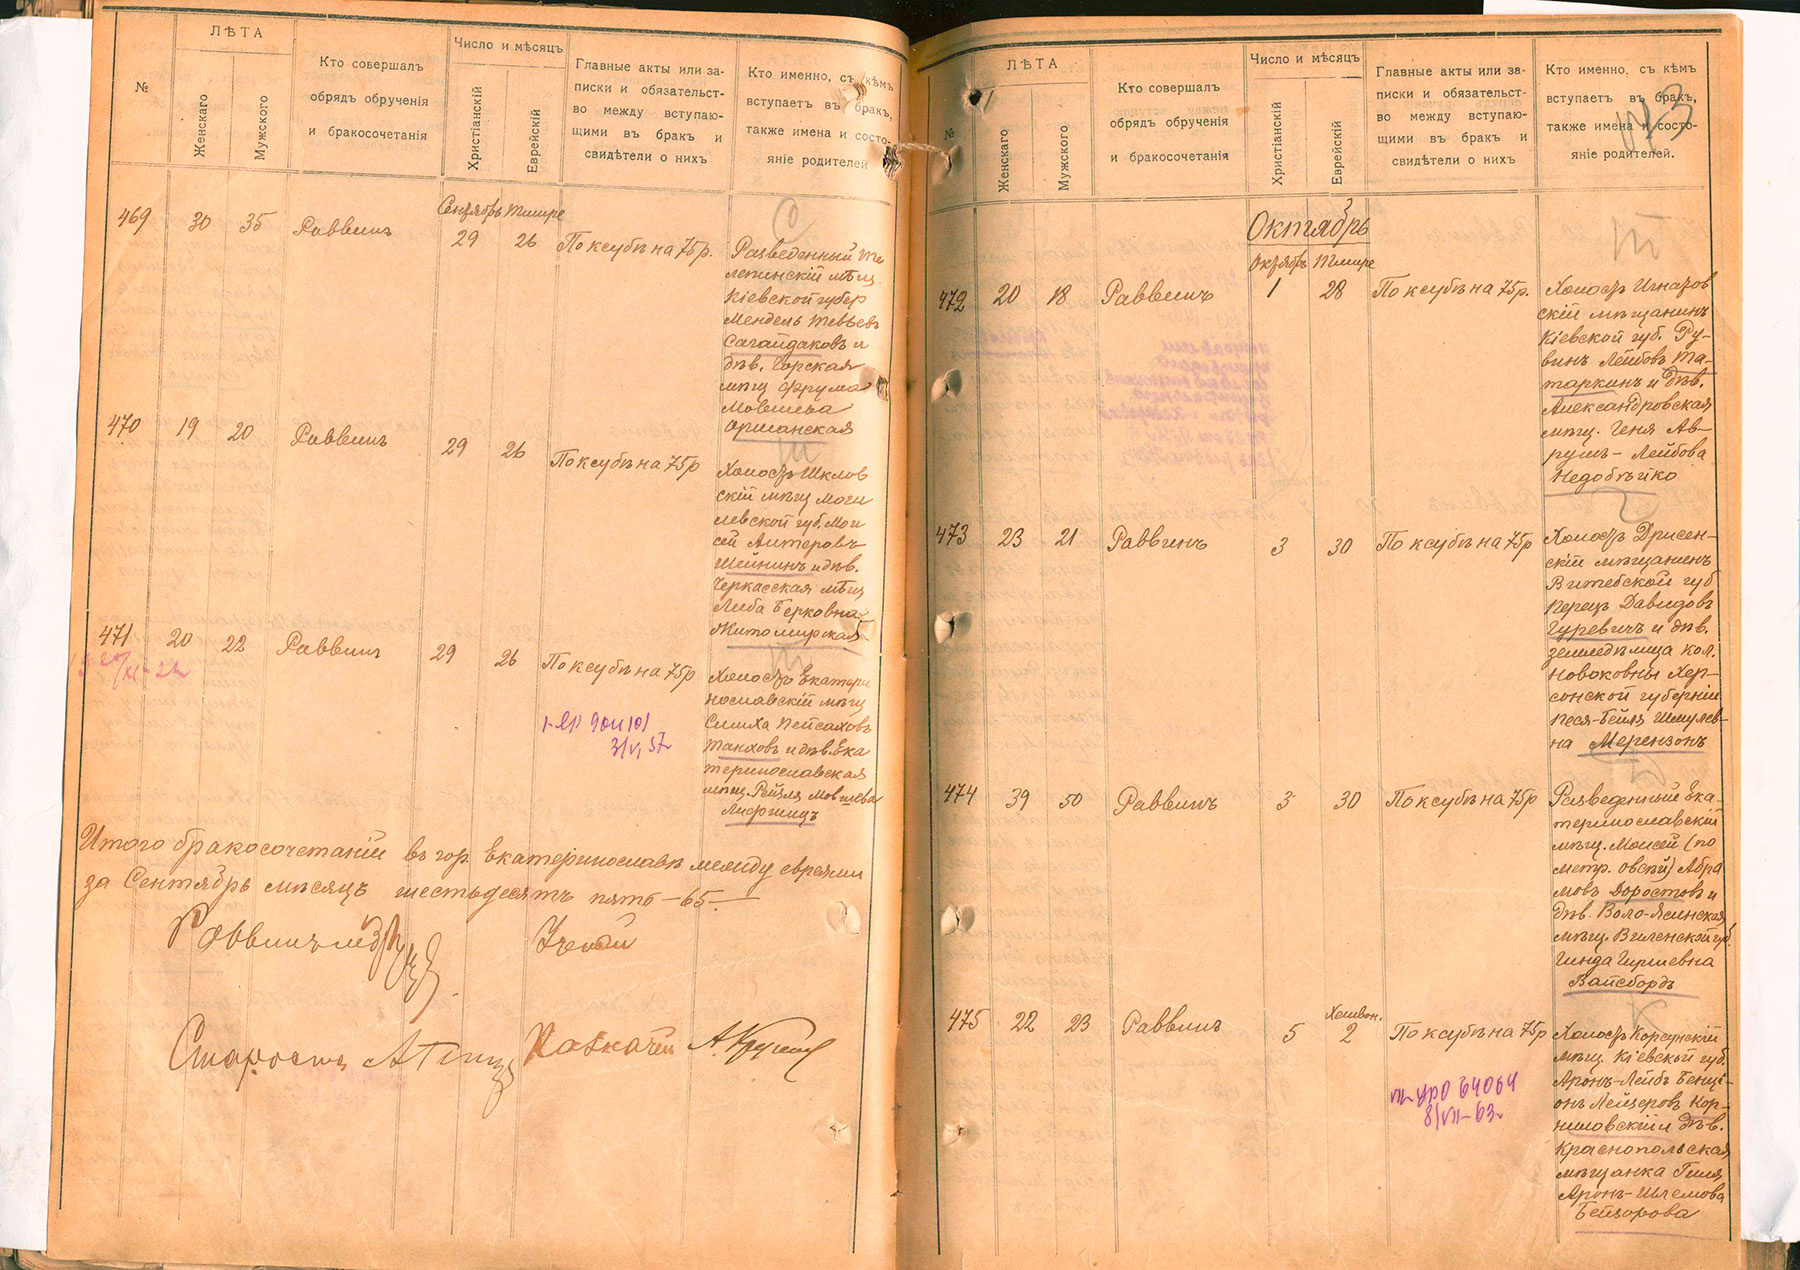 №
ЛѢТА
Женскаго
Мужского
Кто совершалъ
обрядъ обрученія
и бракосочетанія
Число и мѣсяцъ
Христіанскій
Еврейскій
Главные акты или за-
писки и обязательст-
во между вступаю-
щими въ бракъ и
свидѣтели о нихъ
Кто именно, съ кѣмъ
вступаетъ въ бракъ,
также имена и состо-
яніе родителей
469 30 35 Раввинъ
Сентябрь Тишре
29 26 По ксубѣ на 75 р.
Разведенный
мѣщ.
Кіевской губер
Мендель Тевьевъ
Сагайдаковъ и
дѣв. Горская
мѣщ Фрума
Мовшева
Оршанская
470 19 20 Раввинъ 29 26 По ксубѣ на 75 р
Холостъ Шклов
скій мѣщ Моги
левской губ. Мои
сей Антеровъ
Шейнинъ и дѣв.
Черкасская мѣщ
Либа Берковна
Житомирская
471 20 22 Раввинъ 29 26 По ксубѣ на 75 р
Холостъ Екатери
нославскій мѣщ
Симха Пейсаховъ
Танховъ и дѣв. Ека
теринославская
мѣщ. Рейзля Мовшева
Лифшицъ
Итого бракосочетаній въ гор. Екатеринославѣ между евреями
за Сентябрь мѣсяцъ шестьдесятъ пять – 65. –
Раввинъ Ученый
Староста Казначей
№
ЛѢТА
Женскаго
Мужского
Кто совершалъ
обрядъ обрученія
и бракосочетанія
Число и мѣсяцъ
Христіанскій
Еврейскій
Главные акты или за-
писки и обязательст-
во между вступаю-
щими въ бракъ и
свидѣтели о нихъ
Кто именно, съ кѣмъ
вступаетъ въ бракъ,
также имена и состо-
яніе родителей.
Октябрь
Октябрь Тишре
472 20 18 Раввинъ 1 28 По ксубѣ на 75 р.
Холостъ Игнатов
скій мѣщанинъ
Кіевской губ. Ру-
винъ Лейбовъ Та-
таркинъ и дѣв.
Александровская
мѣщ. Геня Ав-
румъ – Лейбова
Недобѣйко
473 23 21 Раввинъ 3 30 По ксубѣ на 75 р
Холостъ Дрисен-
скій мѣщанинъ
Витебской губ
Перецъ Давидовъ
Гуревичъ и дѣв.
земледѣлица кол.
Новоковны Хер-
сонской губерніи
Песя-Бейля Шмулев-
на Мерензонъ
474 39 50 Раввинъ 3 30 По ксубѣ на 75 р
Разведенный Ека-
теринославскій
мѣщ. Моисей (по
метр. Овсей) Абра
мовъ Доростовъ и
дѣв. Воло-Ясинская
мѣщ. Виленской губ.
Гинда Гиршевна
Вайсбордъ
475 22 23 Раввинъ 5
Хешвон.
2 По ксубѣ на 75 р
Холостъ Корсунскій
мѣщ. Кіевской губ.
Аронъ-Лейбъ Бенці-
онъ Лейзеровъ Кор-
ниловскій и дѣв.
Краснопольская
мѣщанка Гиля
Аронъ-Шлемова
Бейзорова